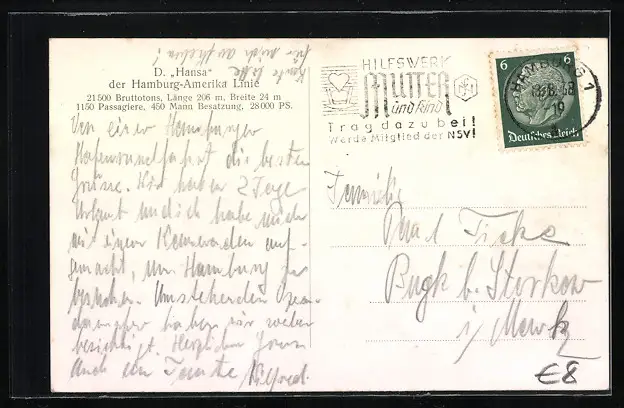 Karte bitte
für mich aufheben!
D. „Hansa“
der Hamburg-Amerika Linie
21500 Bruttotons, Länge 206 m, Breite 24 m
1150 Passagiere, 450 Mann Besatzung, 28000 PS.
Von einer Hamburger
Hafenrundfahrt die besten
Grüsse. Wir haben 2 Tage
Urlaub und ich habe mich
mit einem Kameraden auf-
gemacht, um Hamburg zu
besuchen. Umstehenden Ozean-
dampfer haben wir
besichtigt. Herzlichen Gruss
auch an Tante Wilfred.
HILFSWERK
MUTTER
und Kind
Trag dazu bei!
Werde Mitglied der NSV!
6 6
Deutsches Reich
HAMBURG 1
-19
Familie
Paul
Bugk b. Storkow
i/Mark
€8